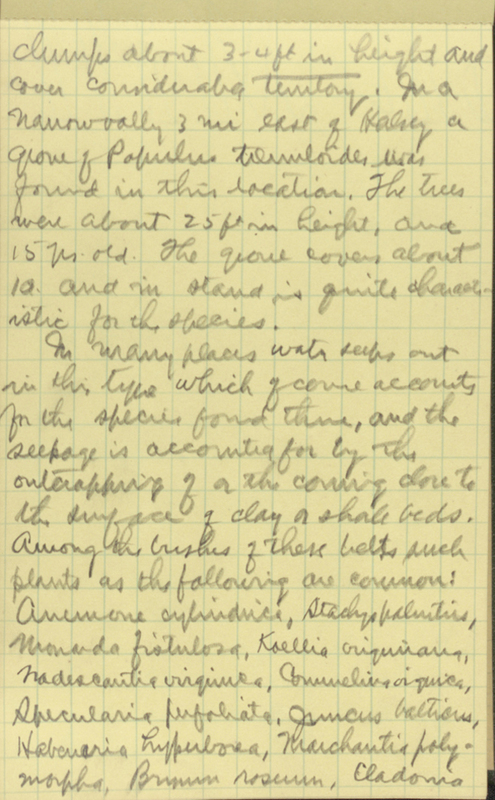 clumps about 3-4 ft in height and
cover considerable territory. In a
narrow vally 3 mi east of Halsey a
grove of Populus tremuloides was
found in this location. The trees
were about 25 ft in height, and
15 yrs. old. The grove covers about
1a. and in stand is quite character-
istic for the species.
In many places water seeps out
in this type which of course accounts
for the species found there, and the
seepage is accounted for by the
outcropping of or the coming close to
the surface of clay or shale beds.
Among the bushes of these belts such
plants as the following are common:
Anemone cylindrica, Stachys palustris,
Monarda fistulosa, Koellia virginiana,
Tradescantia virginica, Commelina virginica,
Specularia perfoliata, Juncus balticus,
Habenaria hyperborea, Marchantia poly-
morpha, Bryum roseum, Cladonia